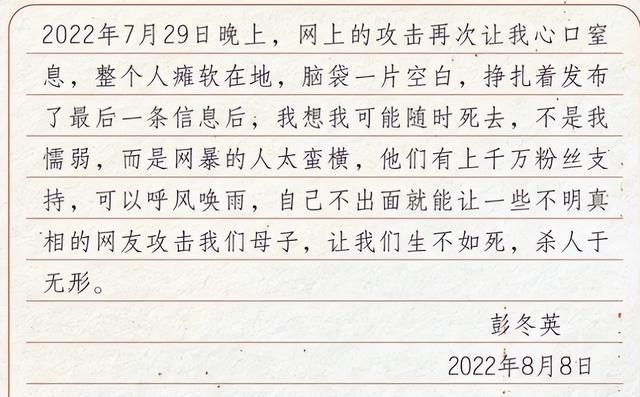 2022年7月29日晚上，网上的攻击再次让我心口窒
息，整个人瘫软在地，脑袋一片空白，挣扎着发布
了最后一条信息后，我想我可能随时死去，不是我
懦弱，而是网暴的人太蛮横，他们有上千万粉丝支
持，可以呼风唤雨，自己不出面就能让一些不明真
相的网友攻击我们母子，让我们生不如死，杀人于
无形。
彭冬英
2022年8月8日